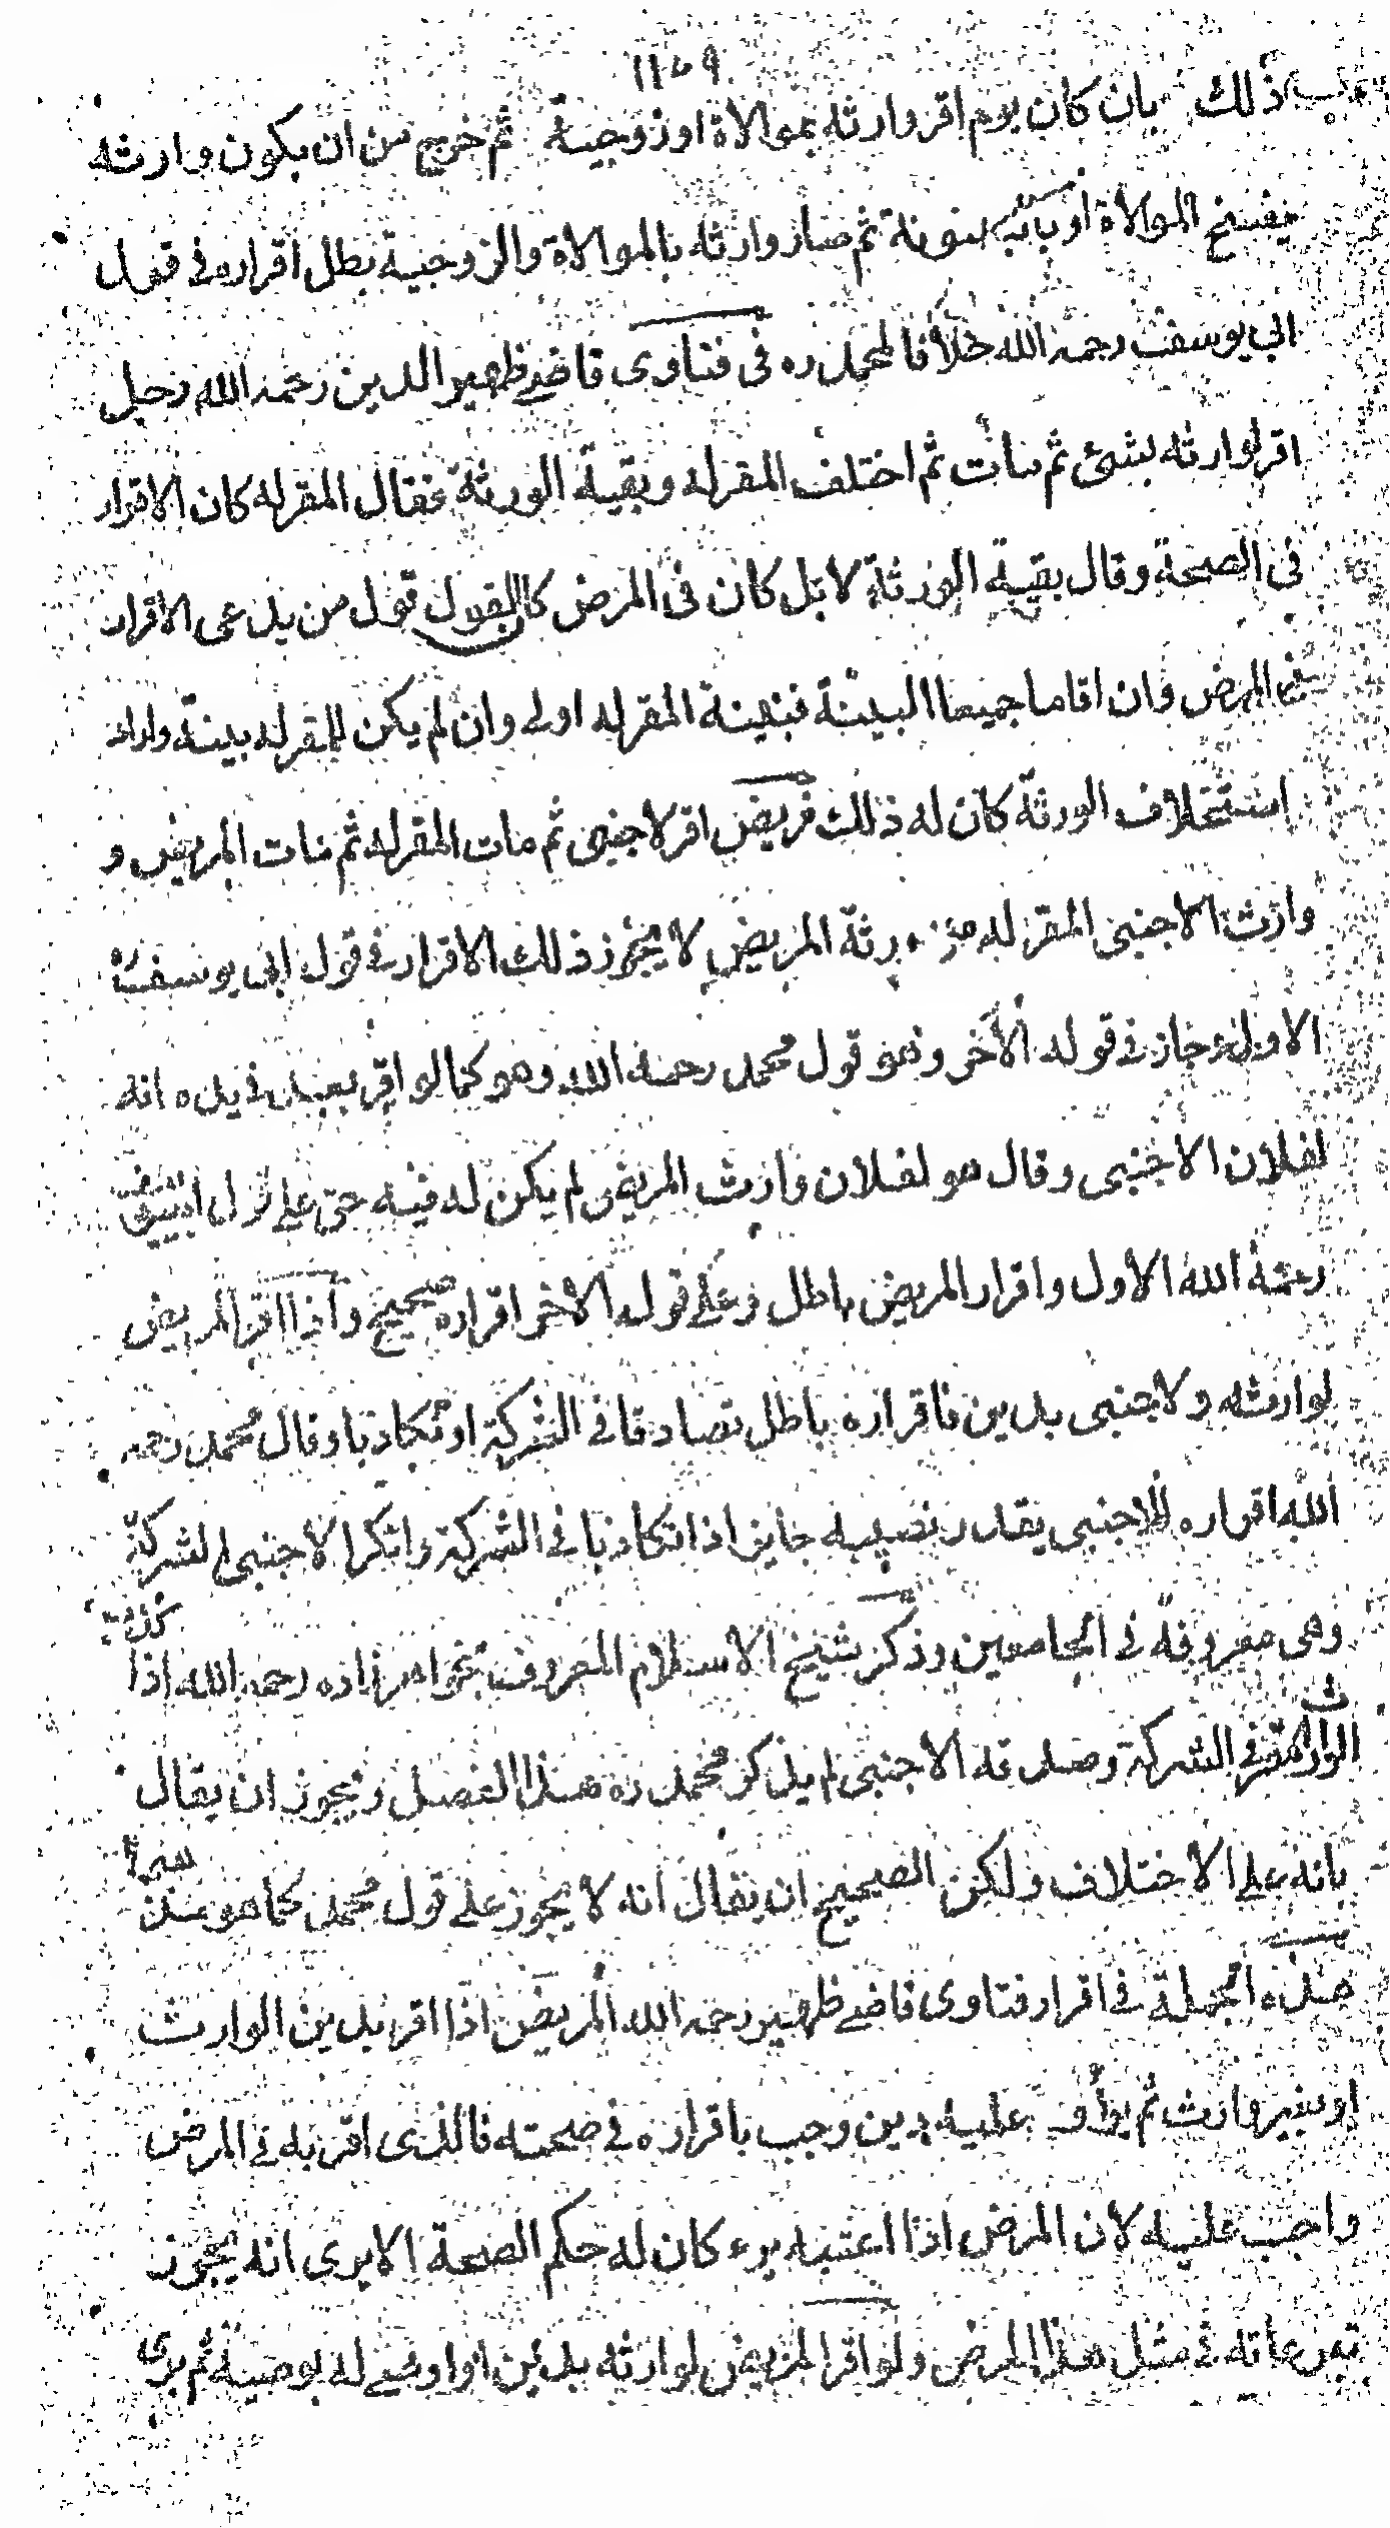 ذلك بان كان يوم اقر وارثه بموالاة او زوجية ثم خرج من ان يكون وارثه
بفسخ الموالاة او بابه بينونة ثم صار وارثه بالموالاة والزوجية بطل اقراره فى قول
ابي يوسف رحمه الله خلافا لمحمد ره فى فتاوى قاضي ظهير الدين رحمه الله رجل
اقر لوارثه بشئ ثم مات ثم اختلف المقر له وبقية الورثة فقال المقر له كان الاقرار
فى الصحة وقال بقية الورثة لا بل كان فى المرض كالقول قول من يدعى الاقرار
فى المرض وان اقاما جميعا البينة فبينة المقر له اولى وان لم يكن للمقر له بينة واراد
استحلاف الورثة كان له ذلك مريض اقر لاجنبى ثم مات المقر له ثم مات المريض و
وارث الاجنبى المقر له من ورثة المريض لا يجوز ذلك الاقرار فى قول ابى يوسف ره
الاول وجاز فى قوله الآخر وهو قول محمد رحمه الله وهو كما لو اقر بعبد فى يده انه
لفلان الاجنبى وقال هو لفلان وارث المريض لم يكن له فيه حق على قول ابى يوسف
رحمة الله الاول واقرار المريض باطل وعلى قوله الاخر اقراره صحيح واذا اقر المريض
لوارثه ولاجنبى بدين فاقراره باطل تصادقا فى الشركة او تكاذبا وقال محمد رحمه
الله اقراره للاجنبى بقدر نصيبه جايز اذا تكاذبا فى الشركة وانكر الاجنبى الشركة
وهى معروفة فى الجامعين وذكر شيخ الاسلام المعروف بخواهرزاده رحمه الله اذا كذب
الوارث المقر فى الشركة وصدقه الاجنبى لم يذكر محمد ره هذا الفصل ويجوز ان يقال
بانه على الاختلاف ولكن الصحيح ان يقال انه لا يجوز على قول محمد كما هو
هذه الجملة فى اقرار فتاوى قاضى ظهير رحمه الله المريض اذا اقر بدين الوارث
او بغير وارث ثم عليه بدين وجب باقراره فى صحته فالذى اقر به فى المرض
واجب عليه لان المرض اذا اعتبه برء كان له حكم الصحة الا يرى انه يجوز
تبرعاته فى مثل هذا المرض ولو اقر المريض لوارثه بدين او اوصى له بوصية ثم برى